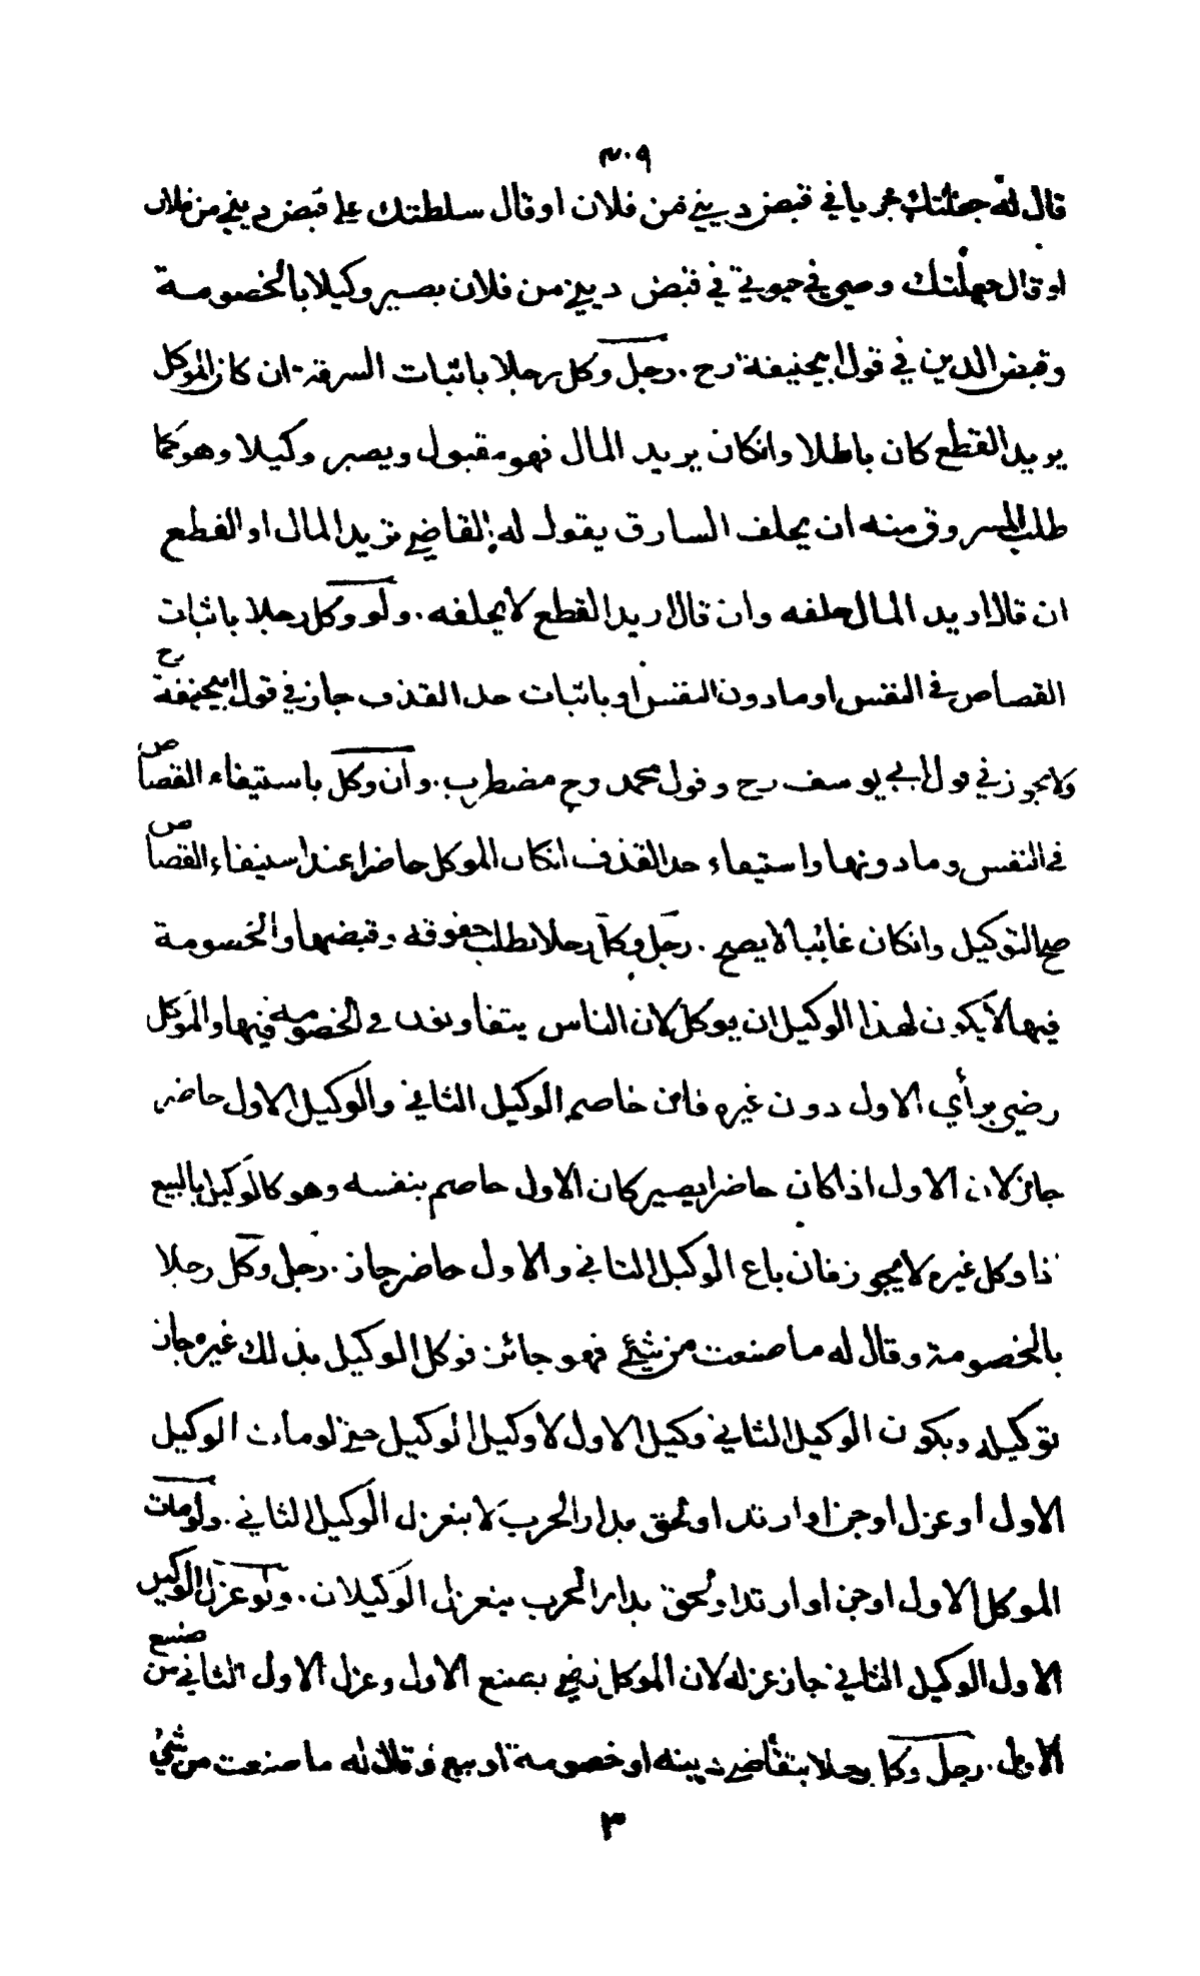 ٣٠٩
قال له جعلتك جريا في قبض ديني من فلان او قال سلطتك على قبض ديني من فلان
او قال جعلتك وصيي في حيوتي في قبض ديني من فلان يصير وكيلا بالخصومة
وقبض الدين في قول ابيحنيفة رح . رجل وكل رجلا باثبات السرقة ان كان الموكل
يريد القطع كان باطلا وانكان يريد المال فهو مقبول ويصير وكيلا وهو كما
طلب المسروق منه ان يحلف السارق يقول له القاضي تريد المال او القطع
ان قال اريد المال حلفه وان قال اريد القطع لا يحلفه . ولو وكل رجلا باثبات
القصاص في النفس او مادون النفس او باثبات حد القذف جاز في قول ابيحنيفة رح
ولا يجوز في قول ابي يوسف رح وقول محمد رح مضطرب . وان وكل باستيفاء القصاص
في النفس وما دونها واستيفاء حد القذف انكان الموكل حاضرا عند استيفاء القصاص
صح التوكيل وانكان غائبا لا يصح . رجل وكل رجلا بطلب حقوقه وقبضها والخصومة
فيها لا يكون لهذا الوكيل ان يوكل لان الناس يتفاوتون في الخصومة فيها والموكل
رضي برأي الاول دون غيره فان خاصم الوكيل الثاني والوكيل الاول حاضر
جاز لان الاول اذا كان حاضرا يصير كان الاول خاصم بنفسه وهو كالوكيل بالبيع
اذا وكل غيره لا يجوز فان باع الوكيل الثاني والاول حاضر جاز . رجل وكل رجلا
بالخصومة وقال له ما صنعت من شيئ فهو جائز فوكل الوكيل بذلك غيره جاز
توكيله ويكون الوكيل الثاني وكيل الاول لا وكيل الوكيل حتى لو مات الوكيل
الاول او عزل او جن او ارتد او لحق بدار الحرب لا ينعزل الوكيل الثاني . ولو مات
الموكل الاول او جن او ارتد او لحق بدار الحرب ينعزل الوكيلان . ولو عزل الوكيل
الاول الوكيل الثاني جاز عزله لان الموكل رضي بصنع الاول وعزل الاول الثاني من صنع
الاول . رجل وكل رجلا بتقاضي دينه او خصومة او بيع وقال له ما صنعت من شيئ
٣